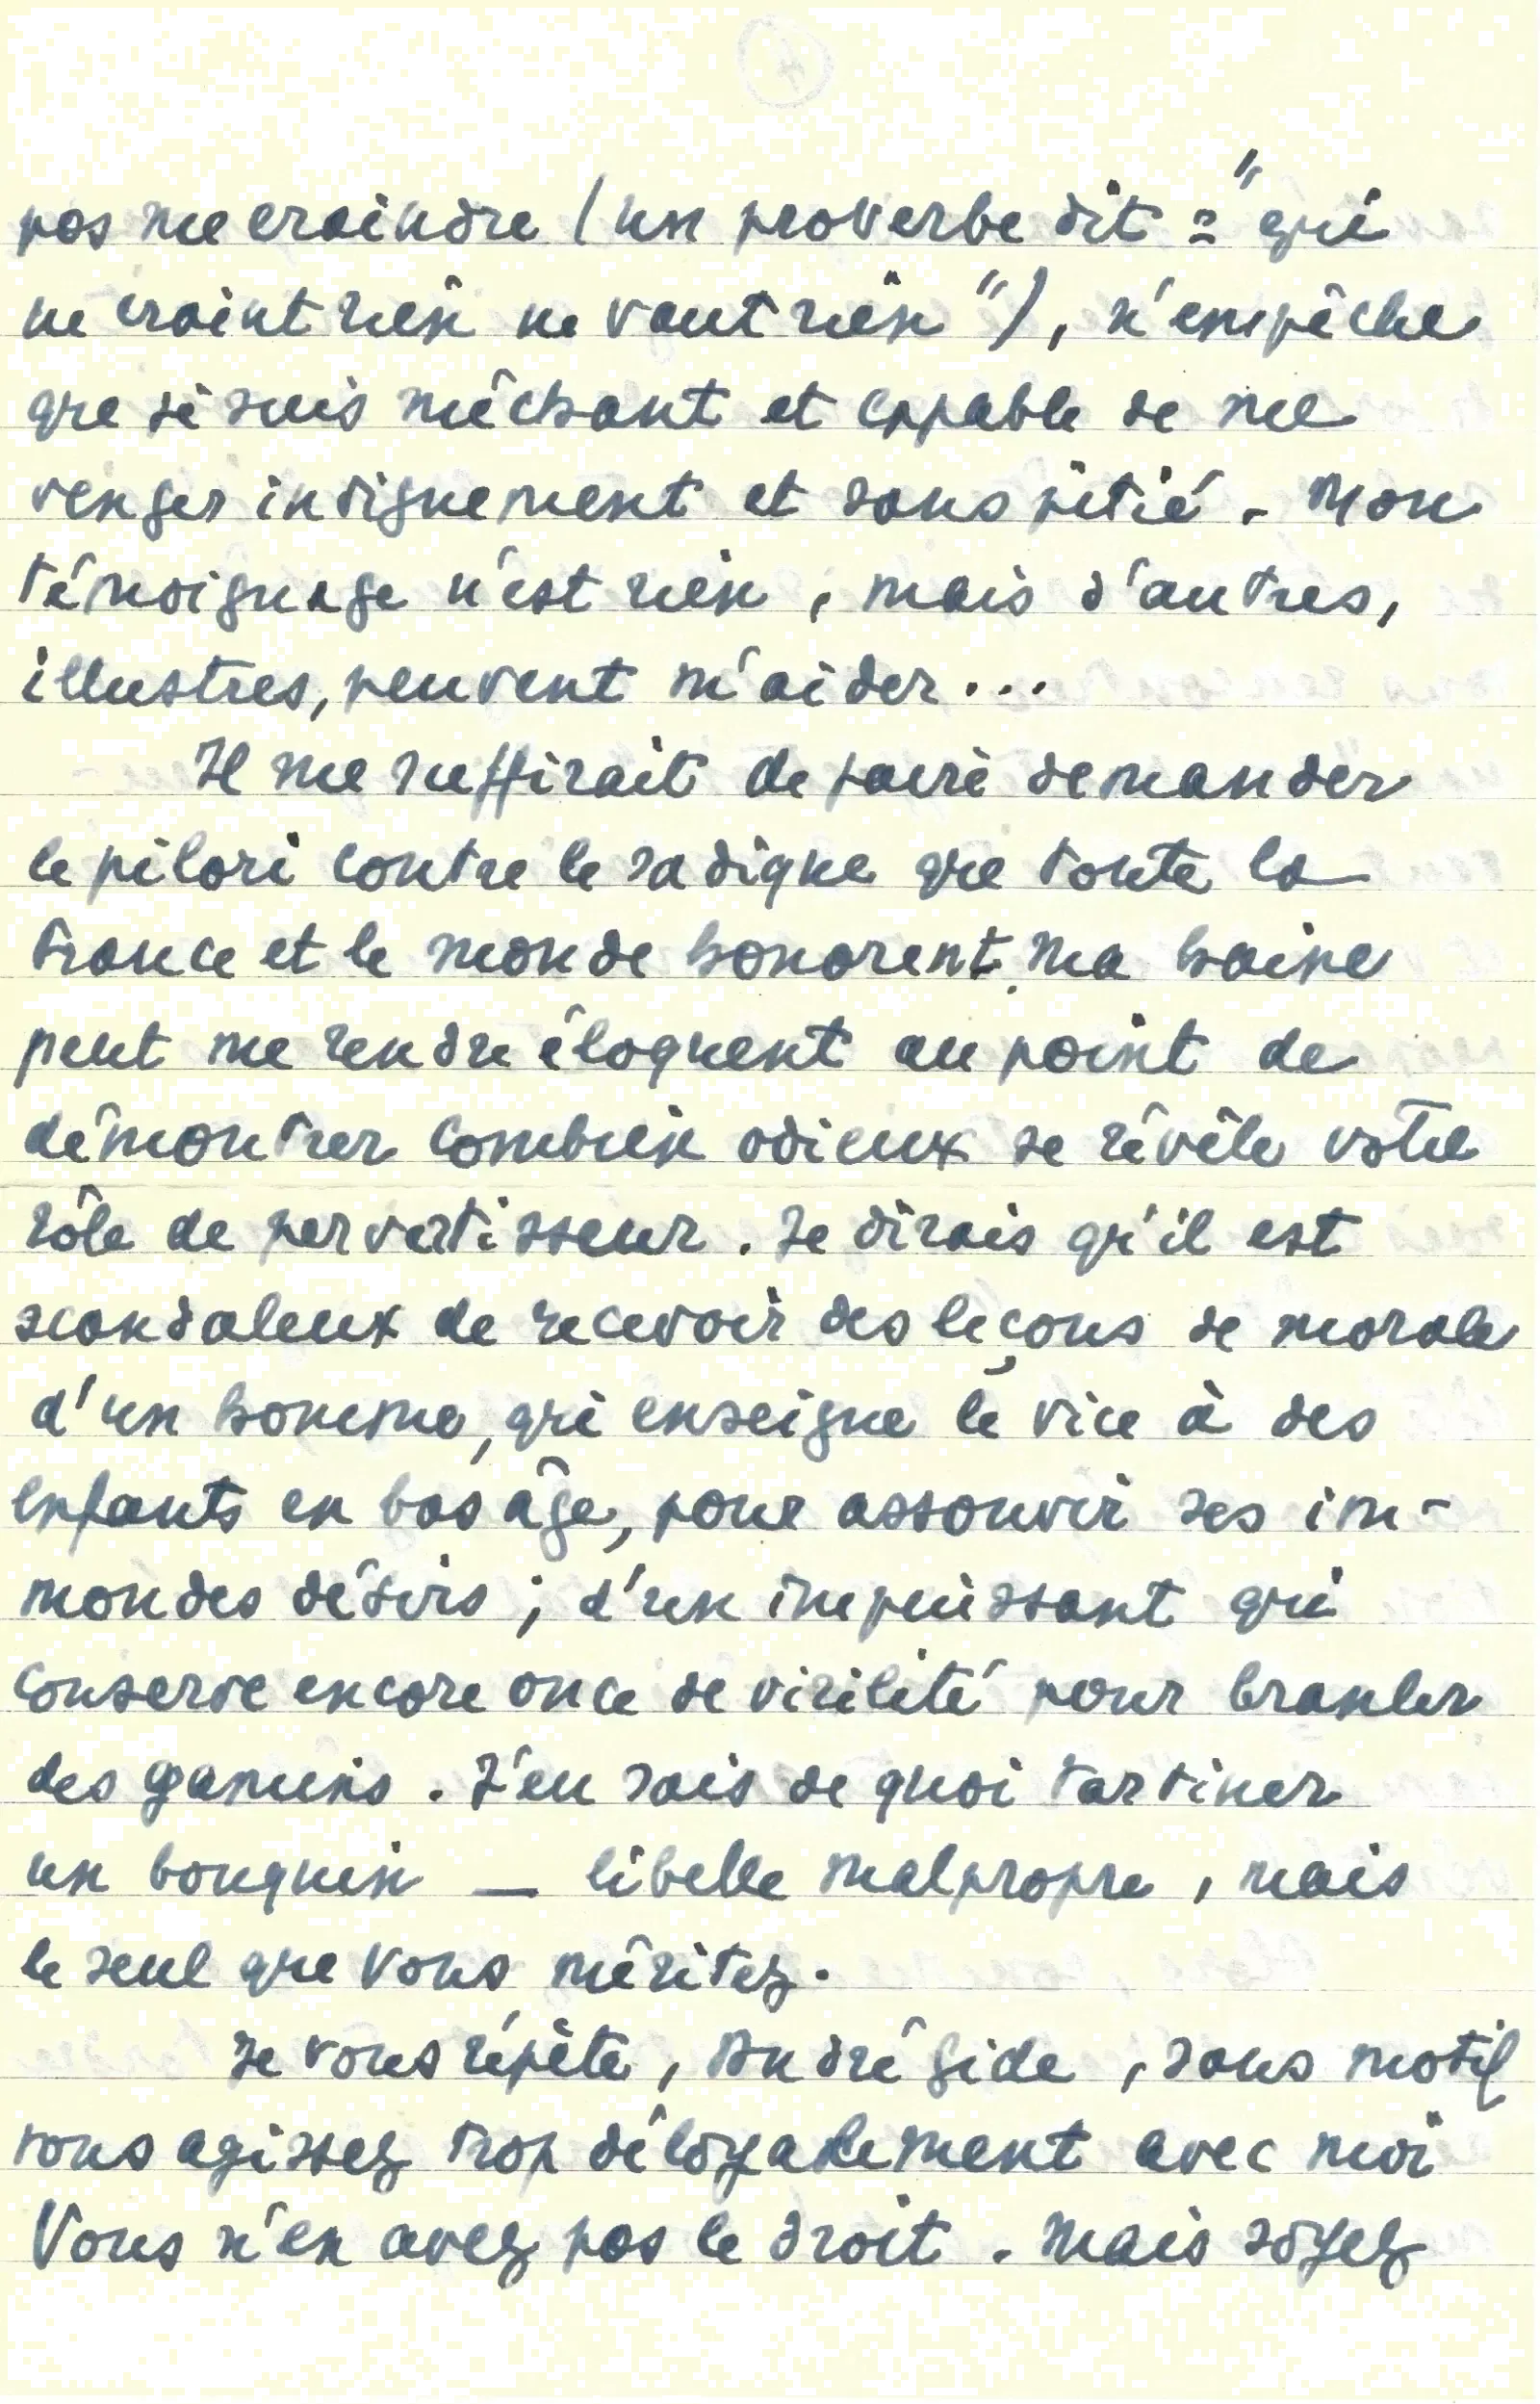 pas me craindre (un proverbe dit : "qui
ne craint rien ne vaut rien"), n'empêche
que je suis méchant et capable de me
venger indignement et sans pitié. Mon
témoignage n'est rien, mais d'autres,
illustres, peuvent m'aider...
Il me suffirait de faire demander
le pilori contre le sadique que toute la
France et le monde honorent. Ma haine
peut me rendre éloquent au point de
démontrer combien odieux se révèle votre
rôle de pervertisseur. Je dirais qu'il est
scandaleux de recevoir des leçons de morale
d'un homme, qui enseigne le vice à des
enfants en bas âge, pour assouvir ses im-
mondes désirs ; d'un impuissant qui
conserve encore once de virilité pour branler
des gamins. J'en sais de quoi tartiner
un bouquin — libelle malpropre, mais
le seul que vous méritez.
Je vous répète, André Gide, sans motif
vous agissez trop déloyalement avec moi
Vous n'en avez pas le droit. Mais soyez